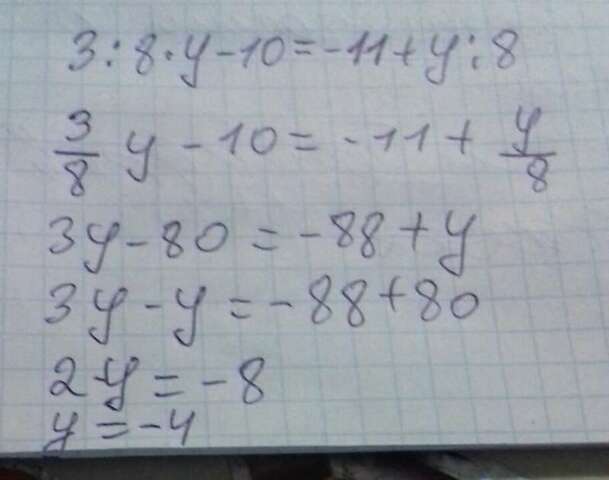 3:8·y-10=-11+y:8
3/8 y - 10 = -11 + y/8
3y-80=-88+y
3y-y=-88+80
2y=-8
y=-4